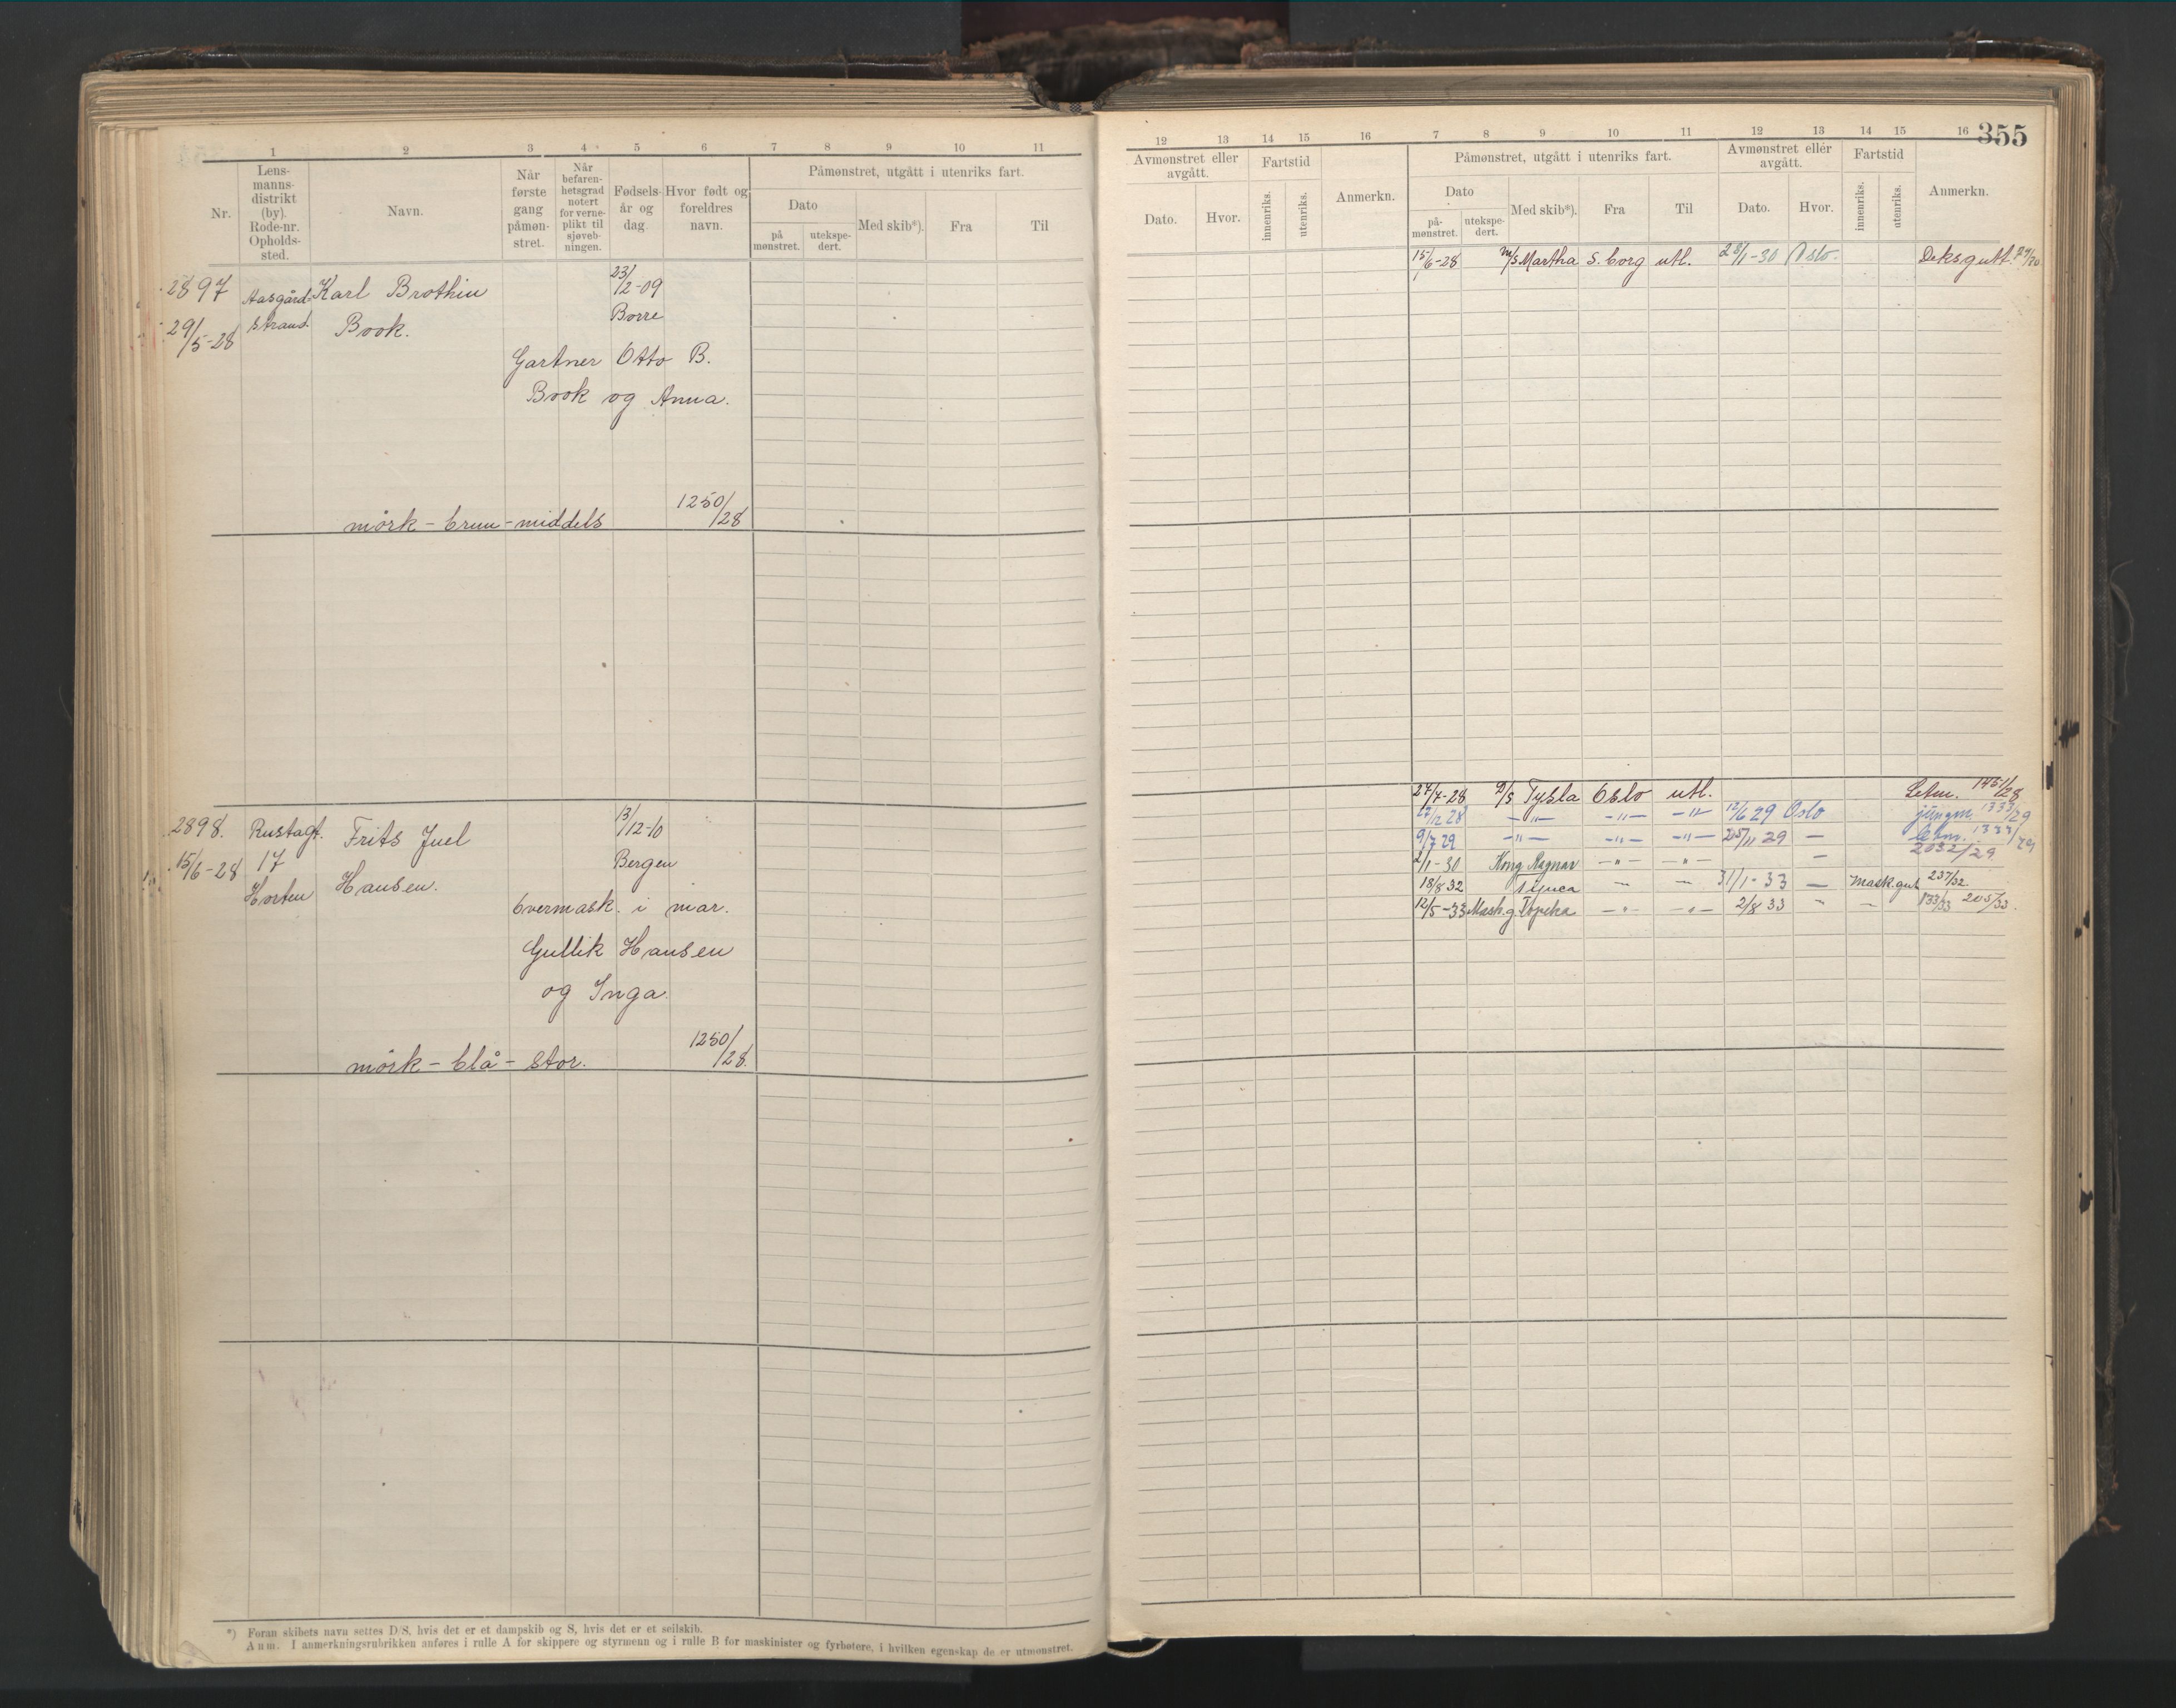 1 2 3 4 5 6 7 8 9 10 11
Nr.
Lens-
manns-
distrikt
(by).
Rode-nr.
Opholds-
sted.
Navn.
Når
første
gang
påmøn-
stret.
Når
befaren-
hetsgrad
notert
for verne-
plikt til
sjøveb-
ningen.
Fødsels-
år og
dag.
Hvor født og
foreldres
navn.
Påmønstret, utgått i utenriks fart.
Dato
på
mønstret.
utekspe-
dert.
Med skib*).
Fra
Til
2897 Aasgård- Karl Brothin 23/2-09
29/5-28 strand. Book. Borre
Gartner Otto B.
Book og Anna.
mörk - brun - middels 1250/28
2898. Rustagt. Frits Juel 13/12-10
15/6-28 17 Bergen
Horten Hansen.
Overmask. i mar.
Gullik Hansen
og Inga.
mörk - blå - stor. 1250/28.
*) Foran skibets navn settes D/S, hvis det er et dampskib og S, hvis det er et seilskib.
Anm. I anmerkningsrubrikken anføres i rulle A for skippere og styrmenn og i rulle B for maskinister og fyrbøtere, i hvilken egenskap de er utmønstret.
355
12 13 14 15 16 7 8 9 10 11 12 13 14 15 16
Avmønstret eller
avgått.
Dato.
Hvor.
Fartstid
innenriks.
utenriks.
Anmerkn.
Påmønstret, utgått i utenriks fart.
Dato
på-
mønstret.
utekspe-
dert.
Med skib*).
Fra
Til
Avmønstret ellér
avgått.
Dato.
Hvor.
Fartstid
innenriks.
utenriks.
Anmerkn.
15/6-28 M/S Martha S.borg utl. 28/1-30 Oslo. Deksgutt. 74/30
27/7-28 D/S Tysla Oslo utl. Letm. 1451/28
12/12 28 -"- -"- -"- 12/6 29 Oslo jungm. 1333/29
9/7 29 -"- -"- -"- 25/11 29 — letm. 1333/29
2032/29
2/1-30 Kong Ragnar -"- -"- —
18/8 32 — — 31/1-33 — Mask.gut 237/32
12/5-33 Mask.g. Topeka -"- -"- 2/8 33 - - 133/33 205/33.